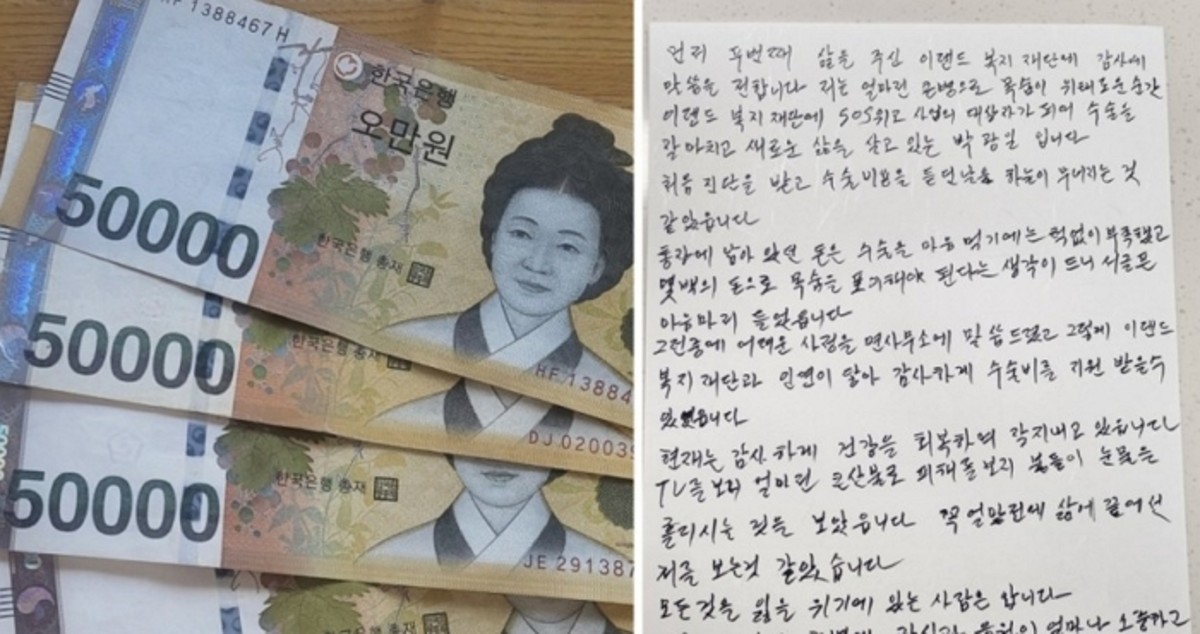 HF 1388467 H
한국은행
오만원
50000
한국은행 총재
HF 13884
50000
한국은행 총재
DJ 020039
50000
한국은행 총재
JE 291387
먼저 두번째 삶을 주신 이랜드 복지 재단에 감사에
말씀을 전합니다 저는 얼마전 큰병으로 목숨이 위태로운순간
이랜드 복지 재단에 SOS위고 사업의 대상자가 되어 수술을
잘 마치고 새로운 삶을 살고 있는 박 광일 입니다
처음 진단을 받고 수술비용을 듣던날을 하늘이 무너지는 것
같았읍니다
통장에 남아 있던 돈은 수술을 마음 먹기에는 턱없이 부족했고
몇백의 돈으로 목숨을 포기해야 된다는 생각이 드니 서글픈
마음마저 들었읍니다
그런중에 어려운 사정을 면사무소에 말씀드렸고 그렇게 이랜드
복지 재단과 인연이 닿아 감사하게 수술비를 지원 받을수
있었읍니다
현재는 감사 하게 건강을 회복하며 잘지내고 있읍니다
TV를보니 얼마전 큰산불로 피해를보신 분들이 눈물을
흘리시는 것을 보았읍니다 꼭 얼마전에 삶에 끝에선
저를 보는것 같았습니다
모든것을 잃을 위기에 있는 사람은 압니다
얼마나 소중하고